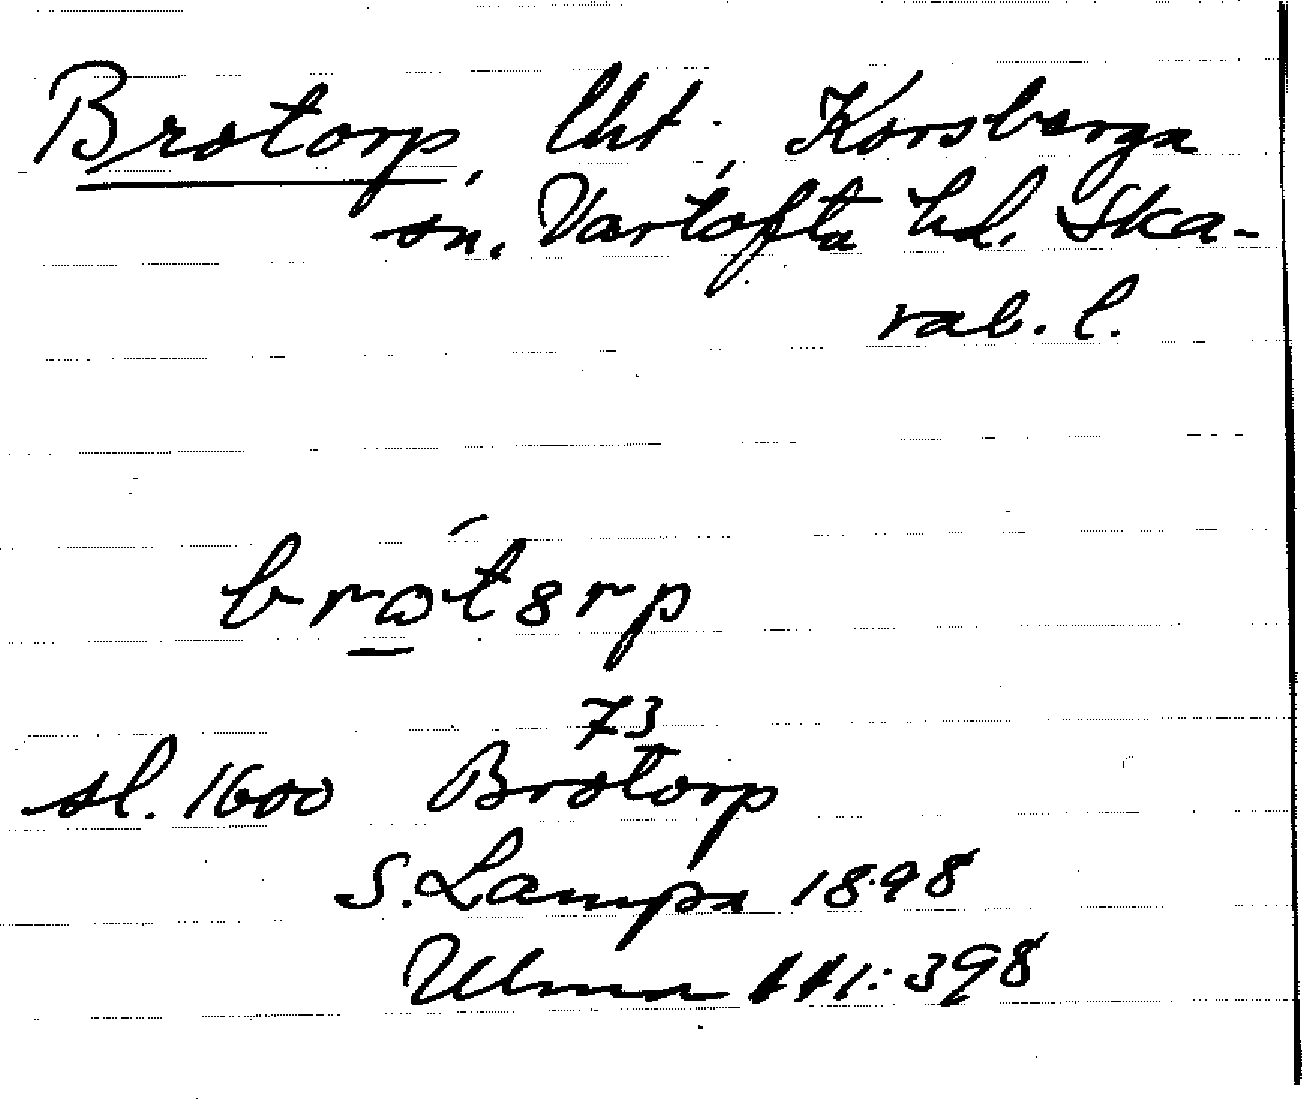 Brotorp, lht. Korsberga
sn. Vartofta hd. Ska-
rab. l.
brotørp
73
sl. 1600 Brotorp
S. Lampa 1898
Ulma 111:398